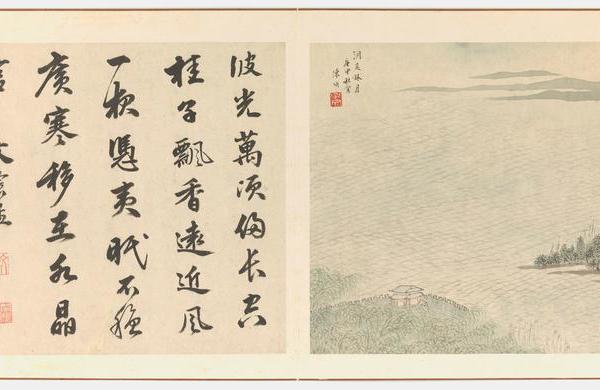 洞庭秋月
庚申秋寫
陳
波光萬頃長空
桂子飄香遠近風
一枕憑夷眠不穩
廣寒移在水晶